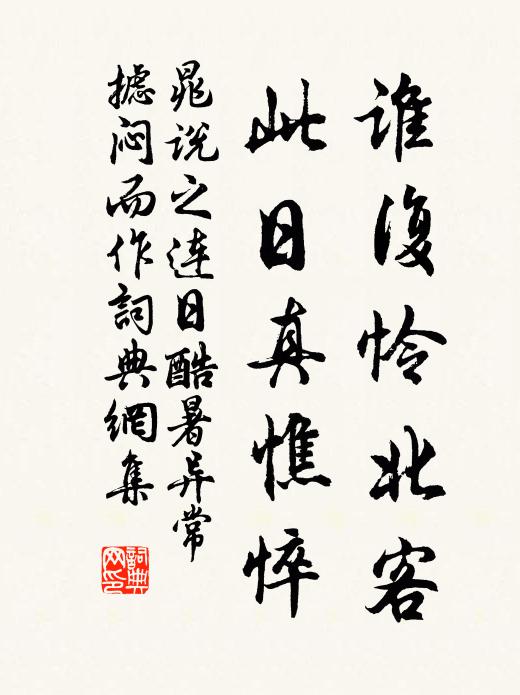 谁復怜北客
此日真憔悴
晁说之连日酷暑异常
摅闷而作詞典網集
詞典
网印